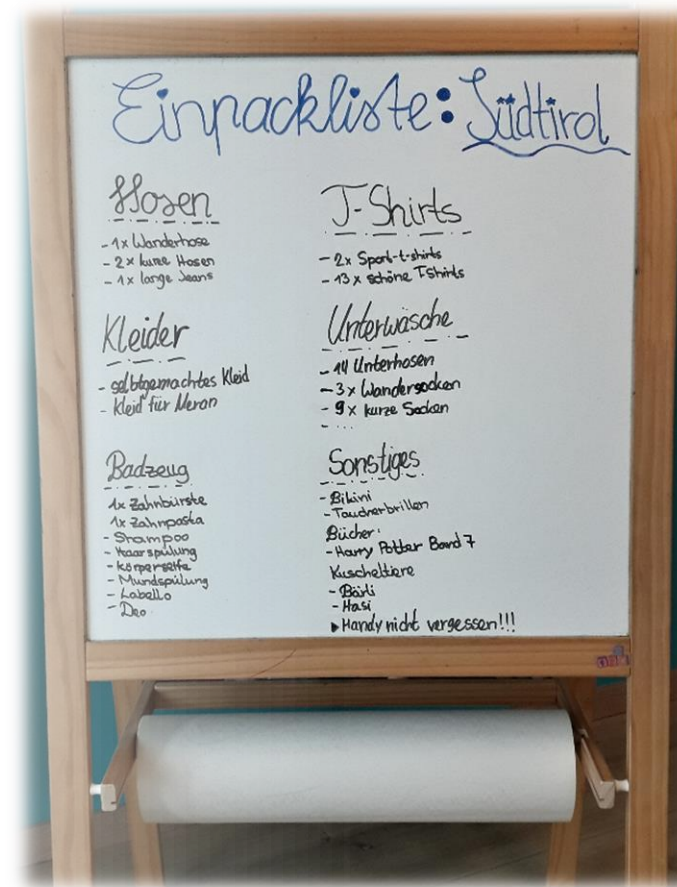 Einpackliste: Südtirol
Hosen
- 1x Wanderhose
- 2x kurze Hosen
- 1x lange Jeans
Kleider
- selbtgemachtes Kleid
- Kleid für Meran
Badzeug
1x Zahnbürste
1x Zahnpasta
- Shampoo
- Haarspülung
- Körperseife
- Mundspülung
- Labello
- Deo
T-Shirts
- 2x Sport-t-shirts
- 13x schöne T-Shirts
Unterwäsche
- 14 Unterhosen
- 3x Wandersocken
- 9x kurze Socken
- ....
Sonstiges
- Bikini
- Taucherbrillen
Bücher:
- Harry Potter Band 7
Kuscheltiere
- Bärli
- Hasi
▸ Handy nicht vergessen!!!